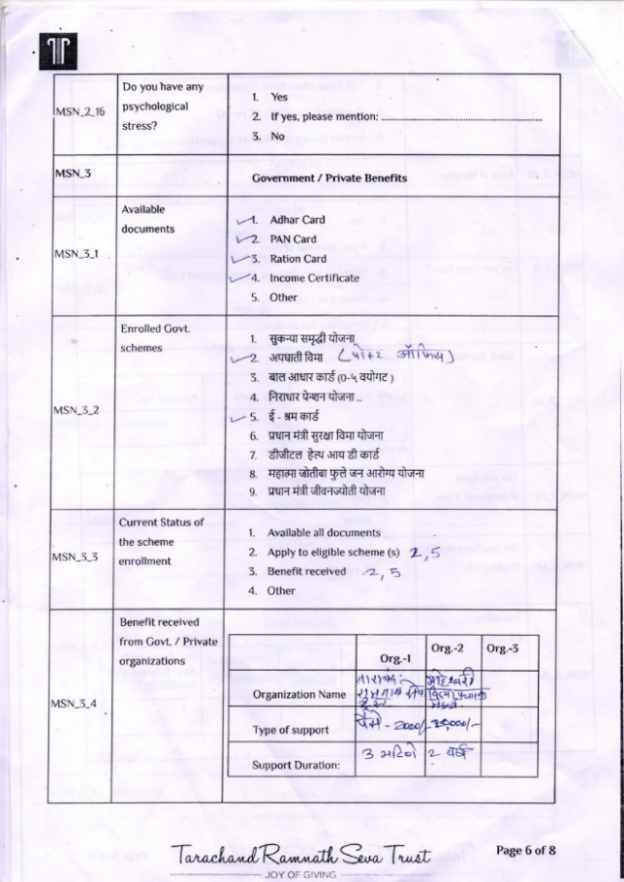 MSN_2_16
Do you have any
psychological
stress?
1. Yes
2. If yes, please mention: ................................................
3. No
MSN_3
Government / Private Benefits
MSN_3_1
Available
documents
✓1. Adhar Card
✓2. PAN Card
✓3. Ration Card
✓4. Income Certificate
5. Other
MSN_3_2
Enrolled Govt.
schemes
1. सुकन्या समृद्धी योजना
✓2. अपघाती विमा (पोस्ट ऑफिस)
3. बाल आधार कार्ड (0-५ वयोगट)
4. निराधार पेन्शन योजना ..
✓5. ई - श्रम कार्ड
6. प्रधान मंत्री सुरक्षा विमा योजना
7. डीजीटल हेल्थ आय डी कार्ड
8. महात्मा जोतीबा फुले जन आरोग्य योजना
9. प्रधान मंत्री जीवनज्योती योजना
MSN_3_3
Current Status of
the scheme
enrollment
1. Available all documents
2. Apply to eligible scheme (s) 2,5
3. Benefit received 2,5
4. Other
MSN_3_4
Benefit received
from Govt. / Private
organizations
Org.-1 Org.-2 Org.-3
Organization Name
Type of support पैसे - 2000/-
Support Duration: 3 महिने 2 वर्ष
Tarachand Ramnath Seva Trust
JOY OF GIVING
Page 6 of 8